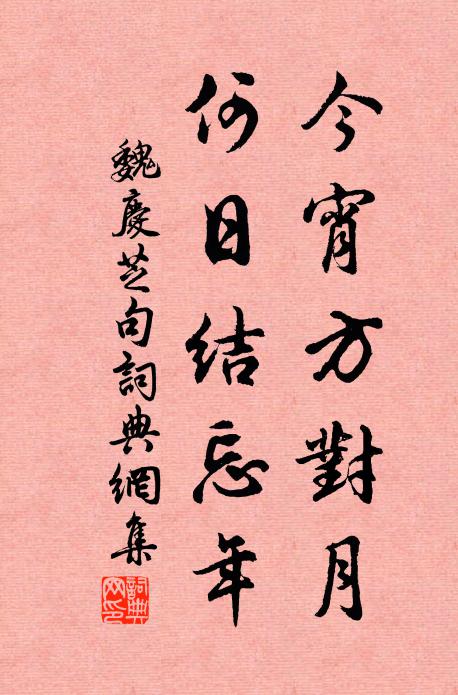 今宵方對月
何日結忘年
魏慶芝句詞典網集
詞典網印